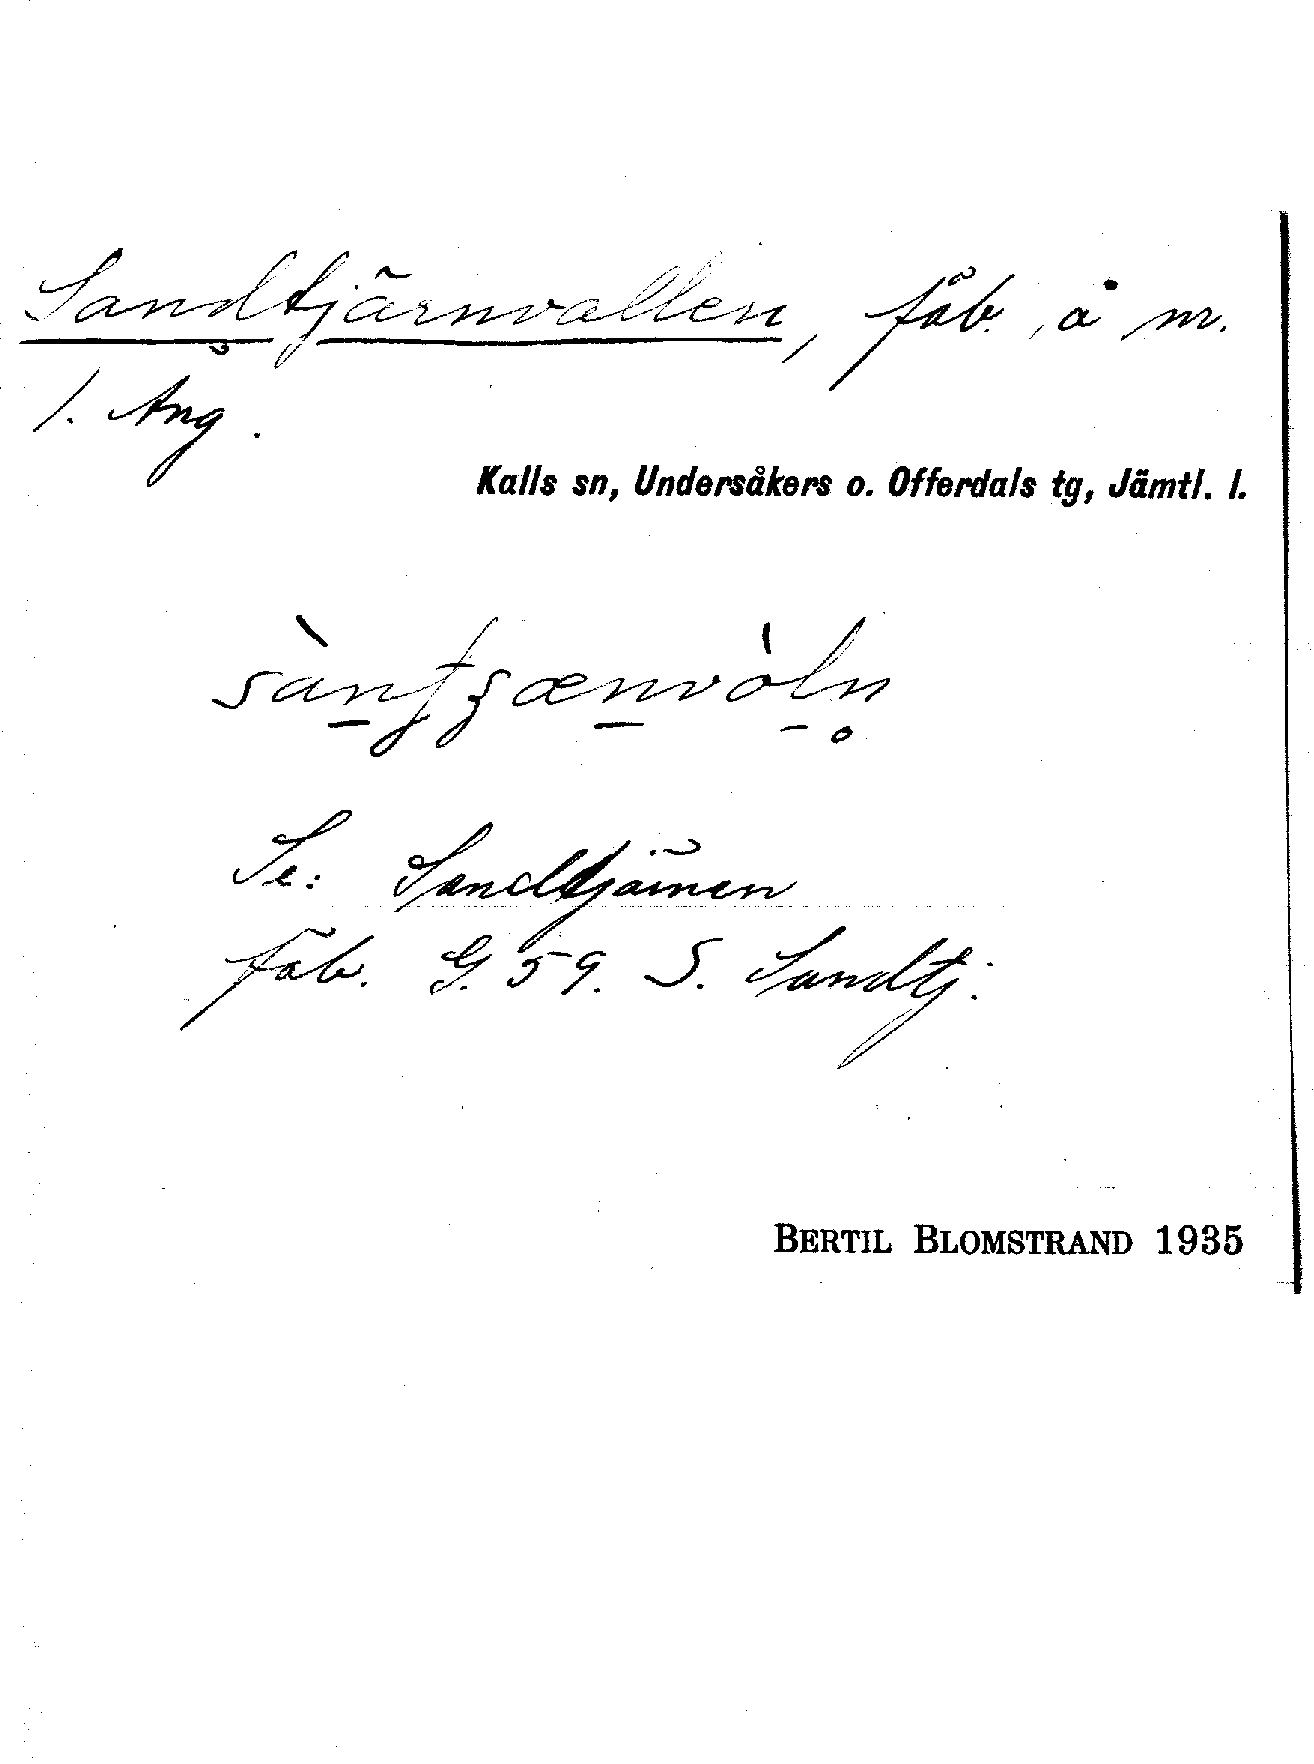 Sandtjärnvallen, fäb. å nr.
1. Äng.
Kalls sn, Undersåkers o. Offerdals tg, Jämtl. l.
Se: Sandtjärnen
fäb. G. 59. S. Sandtj.
BERTIL BLOMSTRAND 1935